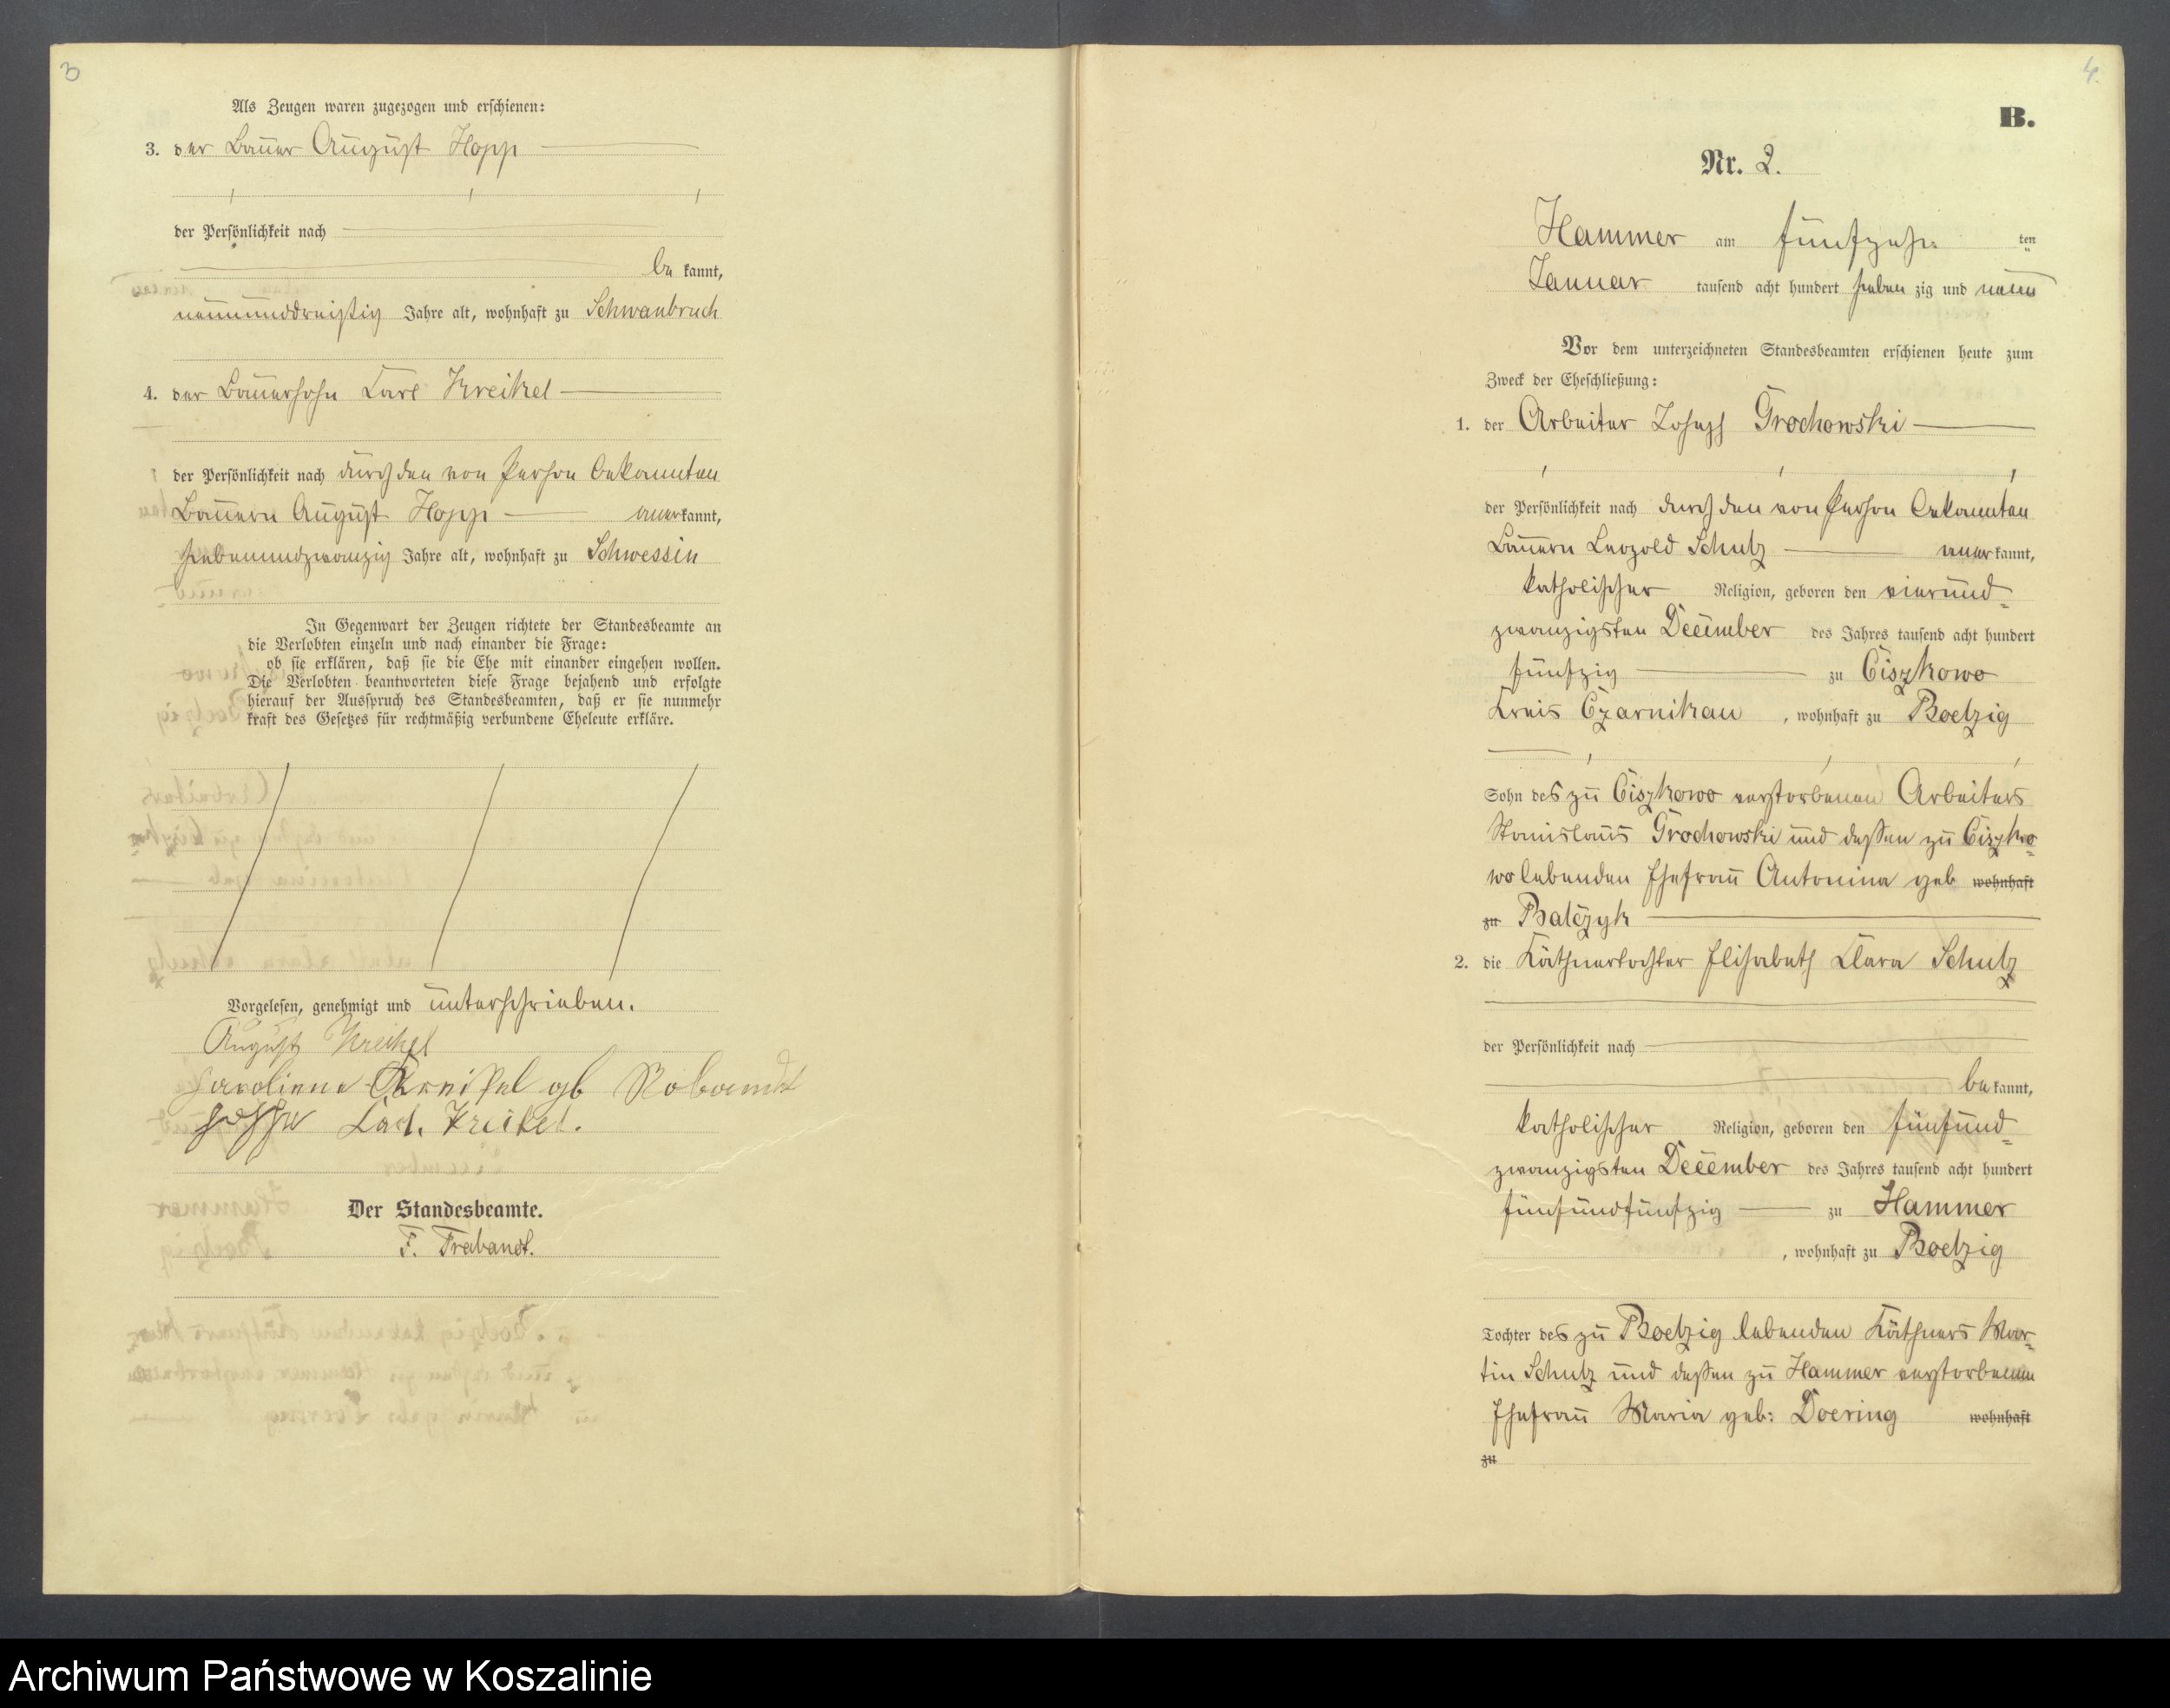 3
Als Zeugen waren zugezogen und erschienen:
3. der Bauer August Hopp
der Persönlichkeit nach
be kannt,
neununddreißig Jahre alt, wohnhaft zu Schwanbruch
4. der Bauersohn Carl Kreikel
der Persönlichkeit nach durch den von Person bekannten
Bauern August Hopp anerkannt,
siebenundzwanzig Jahre alt, wohnhaft zu Schwessin
In Gegenwart der Zeugen richtete der Standesbeamte an
die Verlobten einzeln und nach einander die Frage:
ob sie erklären, daß sie die Ehe mit einander eingehen wollen.
Die Verlobten beantworteten diese Frage bejahend und erfolgte
hierauf der Ausspruch des Standesbeamten, daß er sie nunmehr
kraft des Gesetzes für rechtmäßig verbundene Eheleute erkläre.
Vorgelesen, genehmigt und unterschrieben.
August Kreikel
Caroline Kreikel gb Robandt
Carl. Kreikel.
Der Standesbeamte.
F. Trabandt.
4.
B.
Nr. 2.
Hammer am fünfzehn ten
Januar tausend acht hundert sieben zig und neun
Vor dem unterzeichneten Standesbeamten erschienen heute zum
Zweck der Eheschließung:
1. der Arbeiter Joseph Grochowski
der Persönlichkeit nach durch den von Person bekannten
Bauern Leopold Schulz anerkannt,
katholischer Religion, geboren den vierund-
zwanzigsten December des Jahres tausend acht hundert
fünfzig zu Ciszkowo
Kreis Czarnikau, wohnhaft zu Boetzig
Sohn des zu Ciszkowo verstorbenen Arbeiters
Stanislaus Grochowski und dessen zu Ciszko-
wo lebenden Ehefrau Antonina geb wohnhaft
zu Balczyk
2. die Käthnertochter Elisabeth Clara Schulz
der Persönlichkeit nach
be kannt,
katholischer Religion, geboren den fünfund-
zwanzigsten December des Jahres tausend acht hundert
fünfundfünfzig zu Hammer
, wohnhaft zu Boetzig
Tochter des zu Boetzig lebenden Käthners Mar-
tin Schulz und dessen zu Hammer verstorbenen
Ehefrau Maria geb: Doering wohnhaft
zu
Archiwum Państwowe w Koszalinie